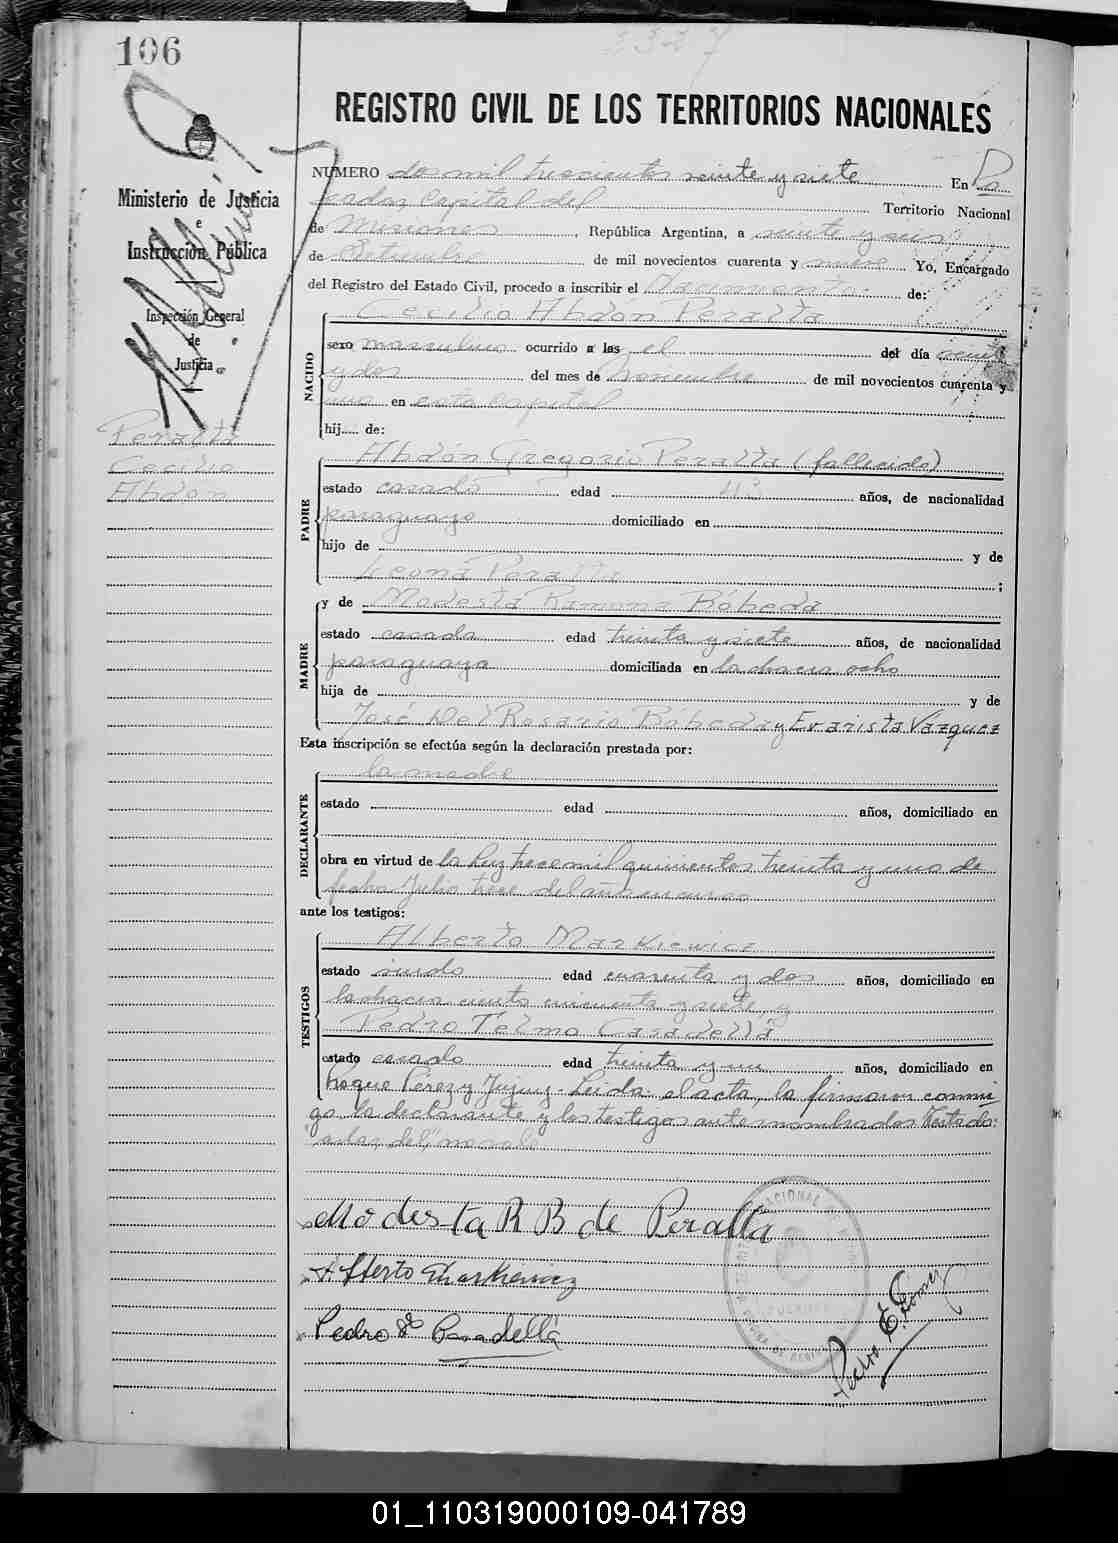 106
3327
REGISTRO CIVIL DE LOS TERRITORIOS NACIONALES
Ministerio de Justicia
e
Instrucción Pública
Inspección General
de
Justicia
NUMERO dos mil trescientos veinte y siete En Po
sadas, Capital del Territorio Nacional
de Misiones, República Argentina, a veinte y seis
de Setiembre de mil novecientos cuarenta y nueve Yo, Encargado
del Registro del Estado Civil, procedo a inscribir el Nacimiento de:
NACIDO
Cecilio Abdon Peralta
sexo masculino ocurrido a las el del día veinte
y dos del mes de Noviembre de mil novecientos cuarenta y
uno en esta Capital
hij..... de:
Peralta
Cecilio
Abdon
PADRE
Abdón Gregorio Peralta (fallecido)
estado casado edad 43 años, de nacionalidad
paraguayo domiciliado en
hijo de y de
Leona Peralta ;
MADRE
y de Modesta Ramona Bóbeda
estado casada edad treinta y siete años, de nacionalidad
paraguaya domiciliada en la chacra ocho
hija de y de
José Del Rosario Bóbeda y Evarista Vázquez
Esta inscripción se efectúa según la declaración prestada por:
DECLARANTE
la madre
estado edad años, domiciliado en
obra en virtud de la Ley trece mil quinientos treinta y uno de
fecha Julio trece del año en curso
ante los testigos:
TESTIGOS
Alberto Markiewicz
estado viudo edad cuarenta y dos años, domiciliado en
la chacra ciento cincuenta y siete, y
Pedro Telmo Casadellá
estado casado edad treinta y un años, domiciliado en
Roque Pérez y Jujuy. Leida el acta, la firmaron conmi
go la declarante y los testigos ante nombrados. Testado:
"a las, del,"
Modesta R B de Peralta
Alberto Markiewicz
Pedro T Casadellá
Pedro E. Gomez
01_110319000109-041789